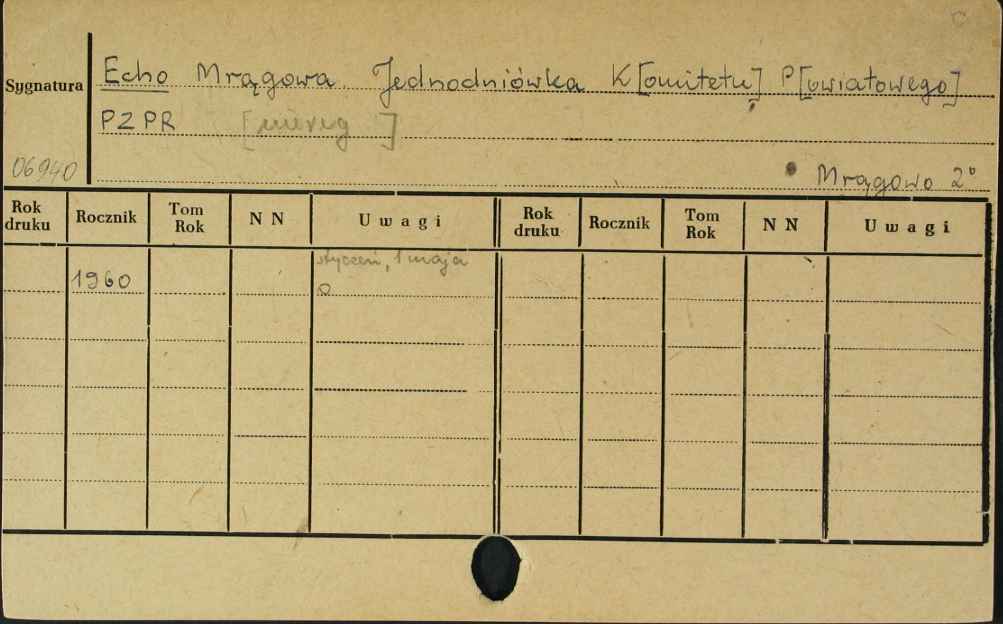 C
Sygnatura Echo Mrągowa. Jednodniówka K[omitetu] P[owiatowego]
PZPR [niereg ]
06940 Mrągowo 2°
Rok druku Rocznik Tom Rok NN Uwagi Rok druku Rocznik Tom Rok NN Uwagi
styczeń, 1 maja
1960